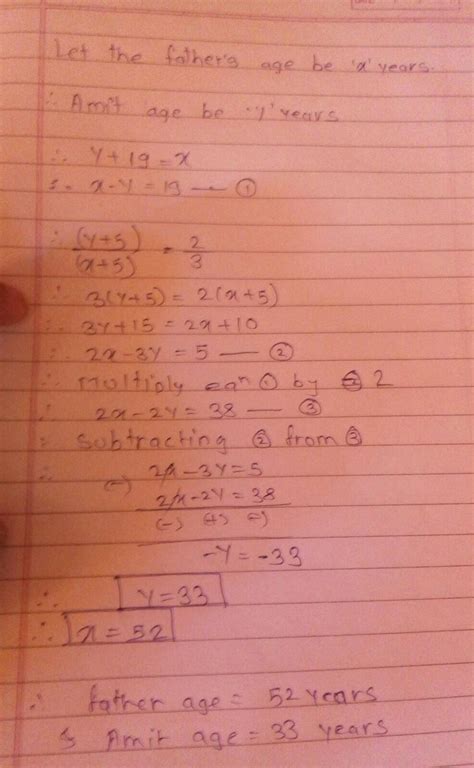 Let the father's age be 'x' years.
∴ Amit age be 'y' years
∴ y+19=x
∴ x-y=19 — ①
∴ (y+5)/(x+5) = 2/3
∴ 3(y+5) = 2(x+5)
∴ 3y+15 = 2x+10
∴ 2x-3y = 5 — ②
∴ Multiply ean ① by 2
∴ 2x-2y = 38 — ③
= Subtracting ② from ③
∴ 2x-3y=5
(-) 2x-2y=38
(-) (+) (-)
-y=-33
∴ y=33
∴ x=52
∴ father age = 52 years
& Amit age = 33 years